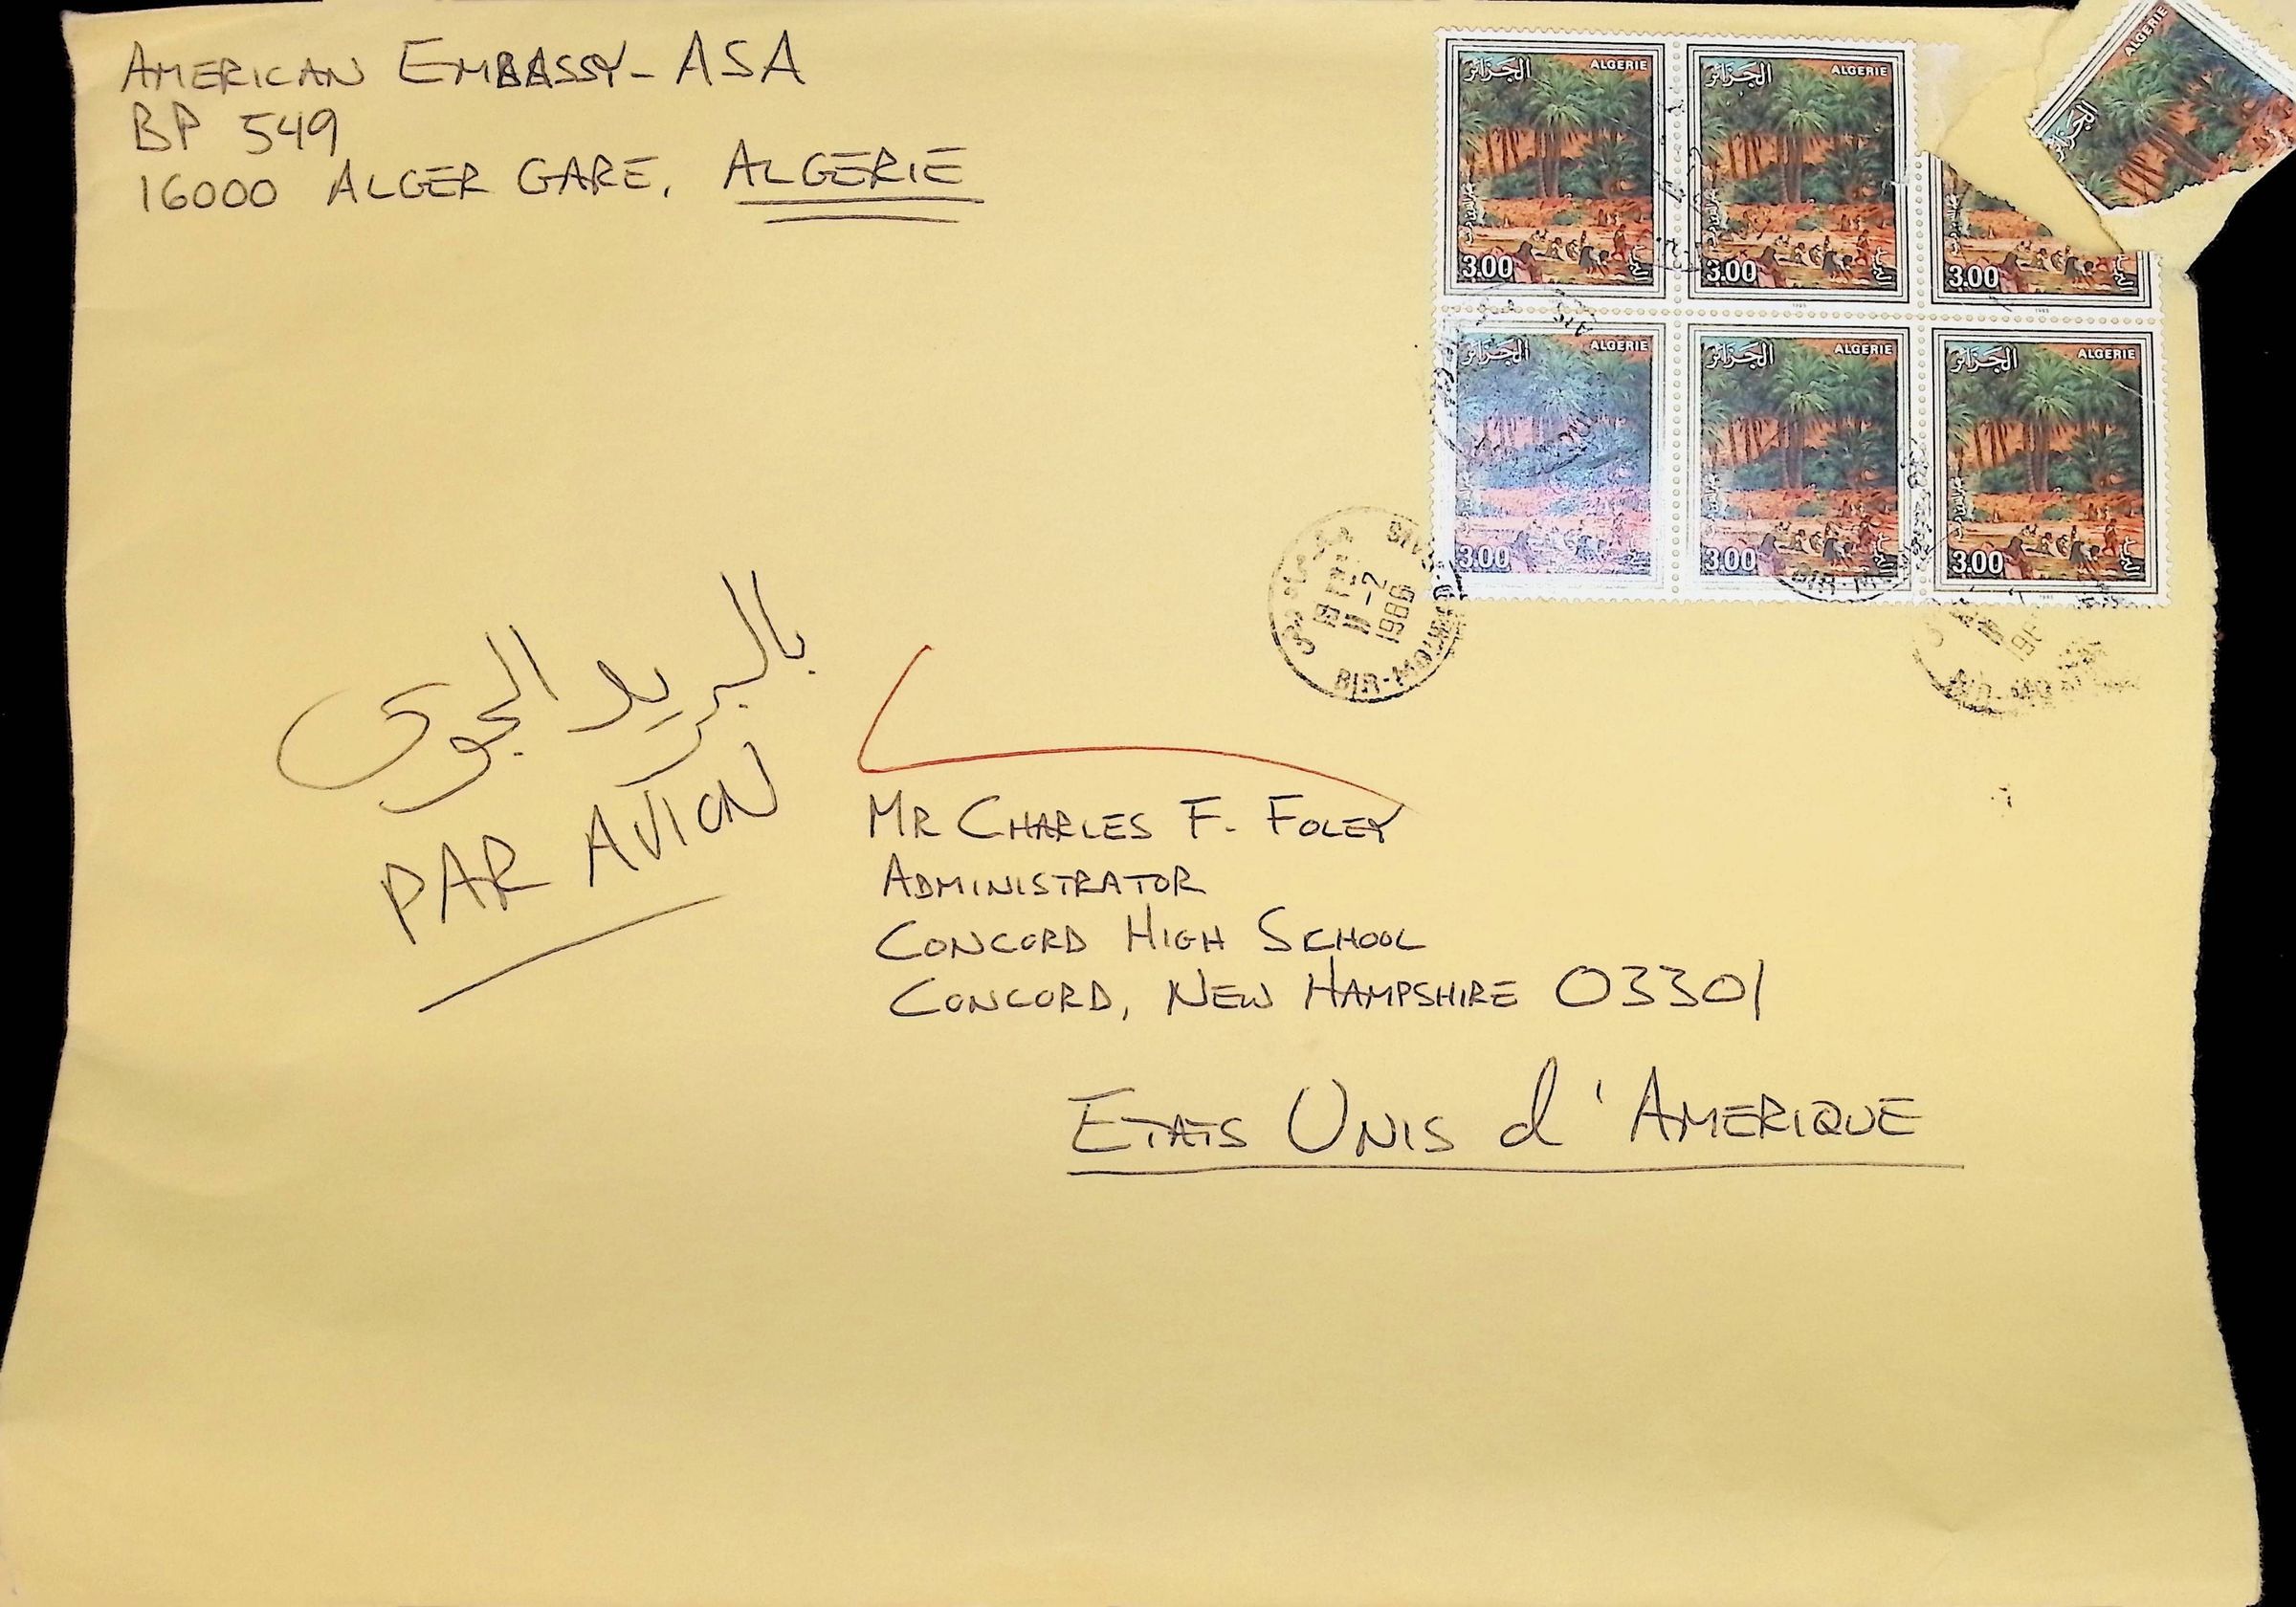 AMERICAN EMBASSY - ASA
BP 549
16000 ALGER GARE, ALGERIE
الجزائر ALGERIE
3.00
الجزائر ALGERIE
3.00
الجزائر ALGERIE
3.00
الجزائر ALGERIE
3.00
الجزائر ALGERIE
3.00
الجزائر ALGERIE
3.00
11-2
1986
BIR-MOU
بالبريد الجوى
PAR AVION
MR CHARLES F. FOLEY
ADMINISTRATOR
CONCORD HIGH SCHOOL
CONCORD, NEW HAMPSHIRE 03301
ETATS UNIS d'AMERIQUE